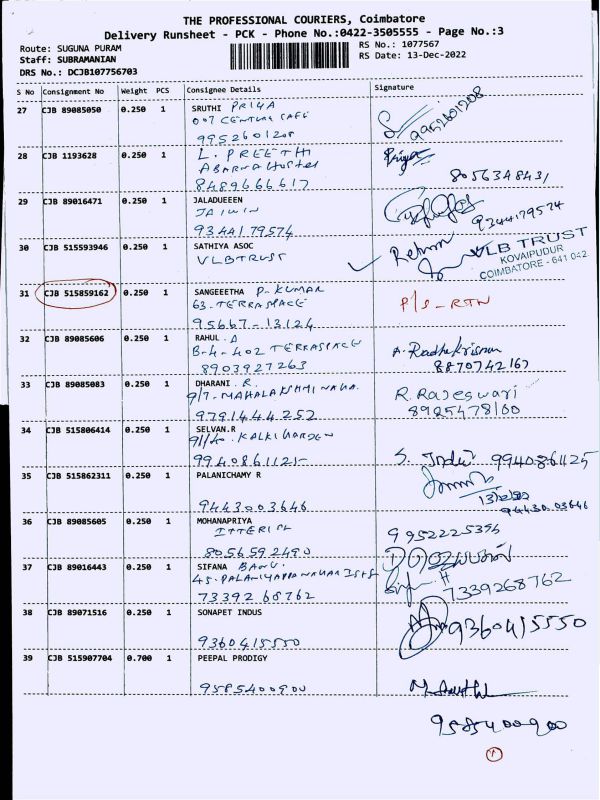 THE PROFESSIONAL COURIERS, Coimbatore
Delivery Runsheet - PCK - Phone No.:0422-3505555 - Page No.:3
Route: SUGUNA PURAM RS No.: 1077567
Staff: SUBRAMANIAN RS Date: 13-Dec-2022
DRS No.: DCJB107756703
S No Consignment No Weight PCS Consignee Details Signature
27 CJB 89085050 0.250 1 SRUTHI PRIYA
007 CENTURA CAFE
9952601208 9952601208
28 CJB 1193628 0.250 1 L. PREETHI Priya
ABARNA HOSTEL
8489666617 8056348431
29 CJB 89016471 0.250 1 JALADUEEEN
JAIWIN
9344179574 9344179574
30 CJB 515593946 0.250 1 SATHIYA ASOC Return
VLB TRUST VLB TRUST
KOVAIPUDUR
COIMBATORE - 641 042
31 CJB 515859162 0.250 1 SANGEEETHA P-KUMAR
63-TERRASPACE P/S-RTN
95667-13124
32 CJB 89085606 0.250 1 RAHUL.A
B-4-402 TERRASPACE A. Radhakrisnan
8903927263 8870742167
33 CJB 89085083 0.250 1 DHARANI.R.
9/7-MAHALAKSHMI NAGA. R. Rajeswari
9791444252 8925478100
34 CJB 515806414 0.250 1 SELVAN.R
KALKI GARDEN
9940861125 S. 9940861125
35 CJB 515862311 0.250 1 PALANICHAMY R
13/12/22
9443003646 94430.03646
36 CJB 89085605 0.250 1 MOHANAPRIYA
9952225356
8056592490
37 CJB 89016443 0.250 1 SIFANA BANU.
45-PALANIYAPPA NAGAR
73392 68762 7339268762
38 CJB 89071516 0.250 1 SONAPET INDUS
9360415550 9360415550
39 CJB 515907704 0.700 1 PEEPAL PRODIGY
9585400900
9585400900